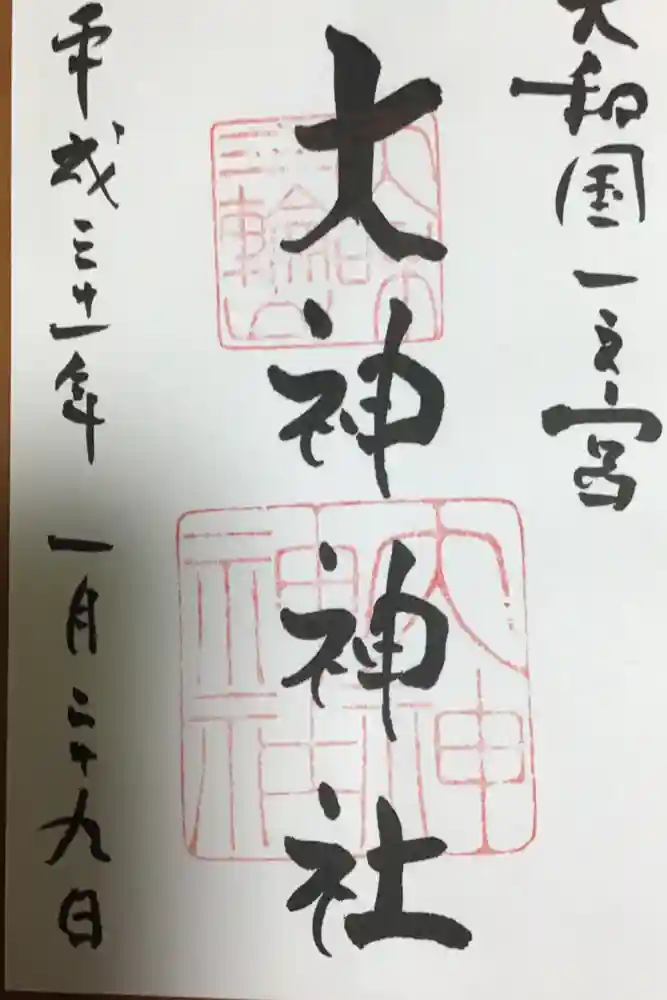 大和国一之宮
大神神社
大神
神社
平成三十一年 一月二十九日